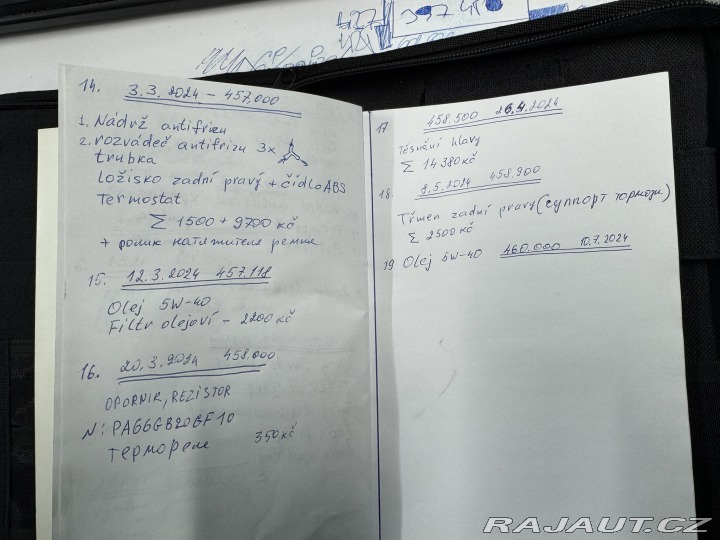 427 397 418
14. 3.3.2024 - 457.000
1. Nádrž antifrizu
2. rozvádeč antifrizu 3x
trubka
ložisko zadní pravý + čídlo ABS
Termostat
Σ 1500 + 9700 kč
+ ролик натяжителя ремня
15. 12.3.2024 457.118
Olej 5W-40
Filtr olejoví - 2200 kč
16. 20.3.2024 458.000
OPORNIK, REZISTOR
N: PA66GB20GF10
термореле 350 kč
17 458.500 26.4.2024
Těsnění hlavy
Σ 14380 kč
18. 8.5.2024 458.900
Třmen zadní pravy (суппорт тормозн)
Σ 2500 kč
19 Olej 5W-40 460.000 10.7.2024
RAJAUT.CZ